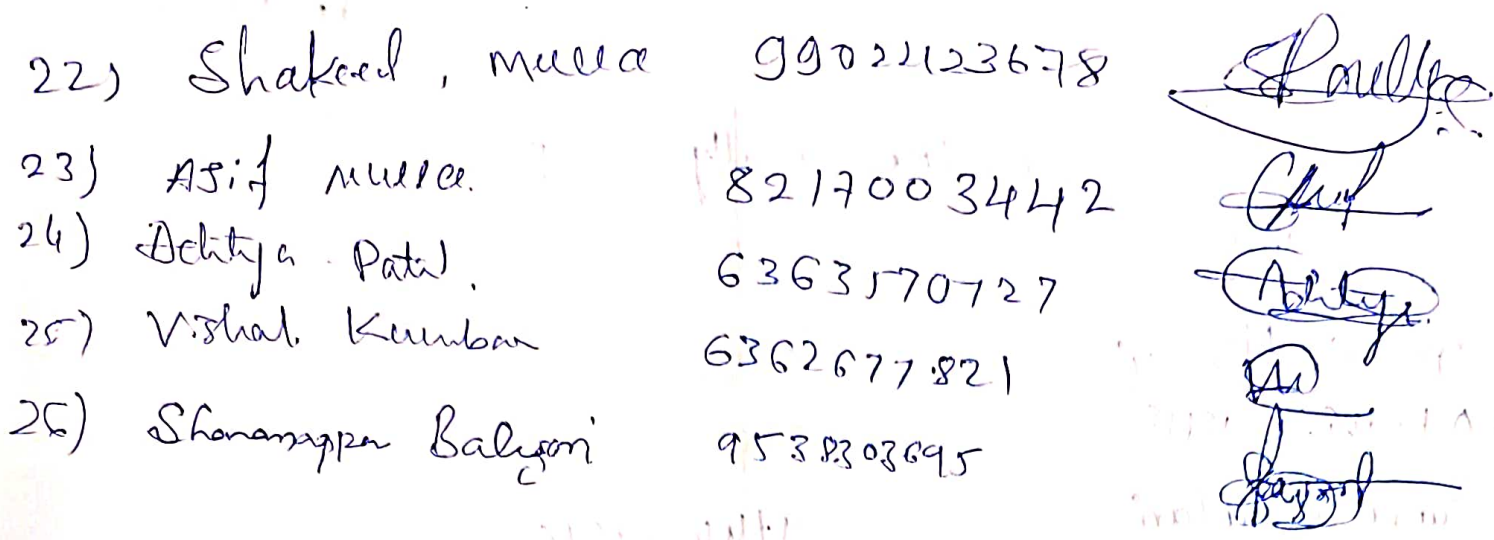 22) Shakeel, Mulla 9902123678
23) Asif Mulla. 8217003442
24) Aditya Patil. 6363570727
25) Vishal. Kumbar 6362677821
26) 9538303695